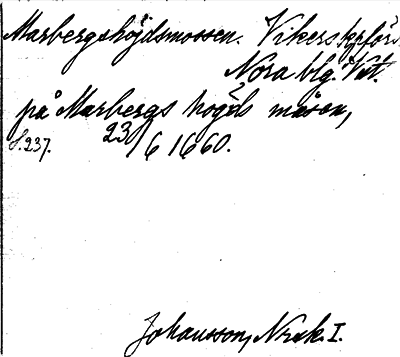 Marbergshöjdsmossen. Vikers kpförs.
Nora blg. Vstm.
på Marbergs högds måsen,
S. 237. 23/6 1660.
Johansson, Norsk. I.